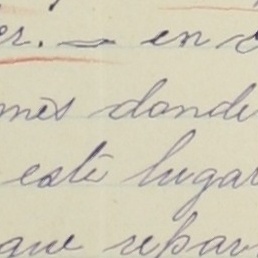 er. — en
mes donde
este lugar
que repar